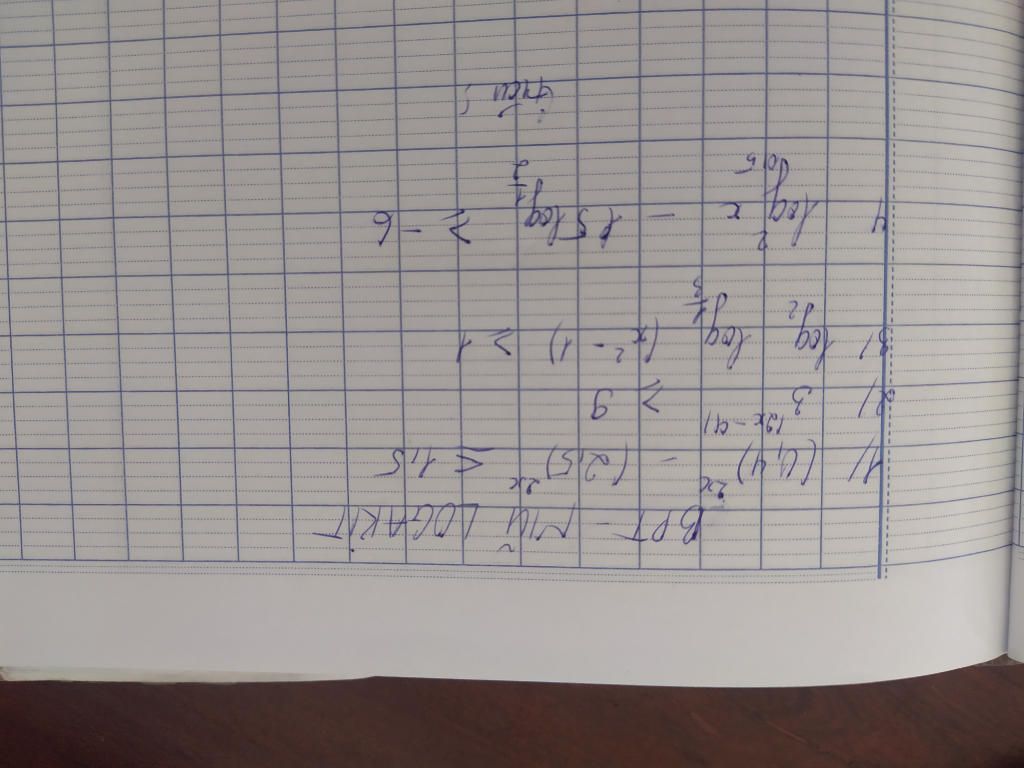 BPT - MŨ LOGARIT
1/ (0,4)^2x - (2,5)^2x ≥ 1,5
2/ 3^|2x-4| ≤ 9
3/ log₂ log_1/3 (x² - 1) ≤ 1
4 log²_0,5 x - 5 log_1/2 ≤ -6